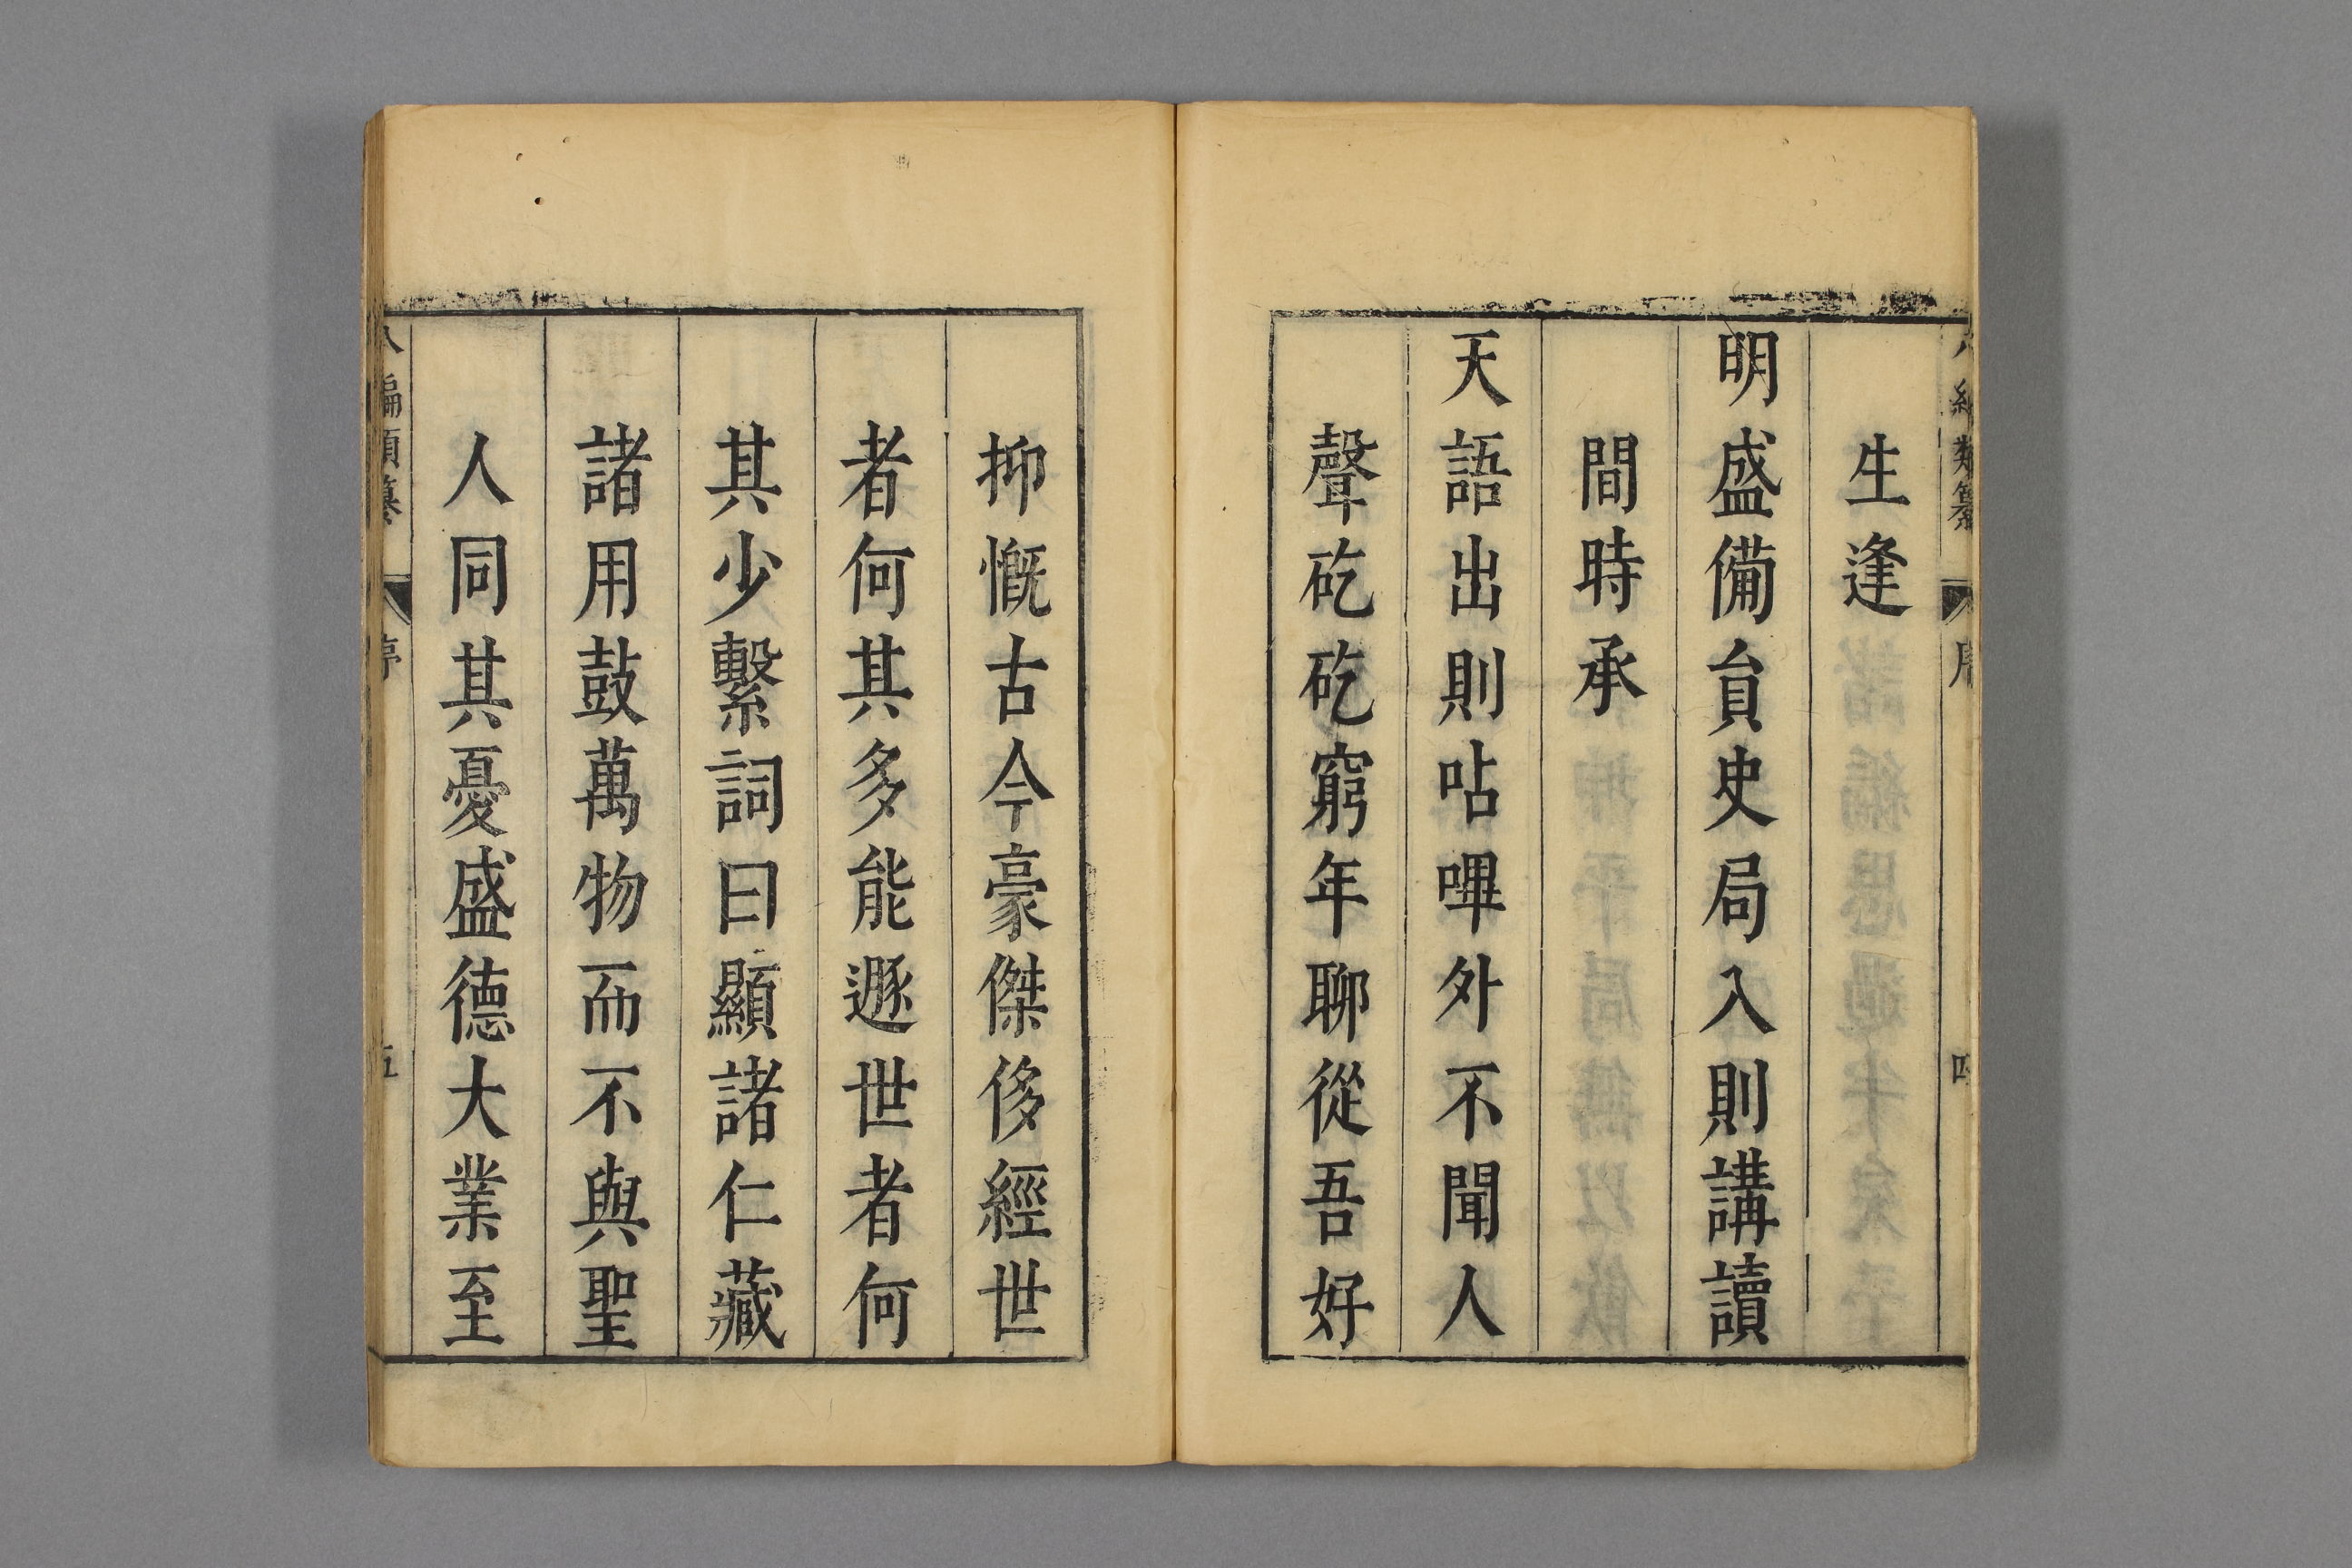 八編類纂 序 四
生逢
明盛備員史局入則講讀
間時承
天語出則呫嗶外不聞人
聲矻矻窮年聊從吾好
抑慨古今豪傑侈經世
者何其多能遯世者何
其少繫詞曰顯諸仁藏
諸用鼓萬物而不與聖
人同其憂盛德大業至
八編類纂 序 五